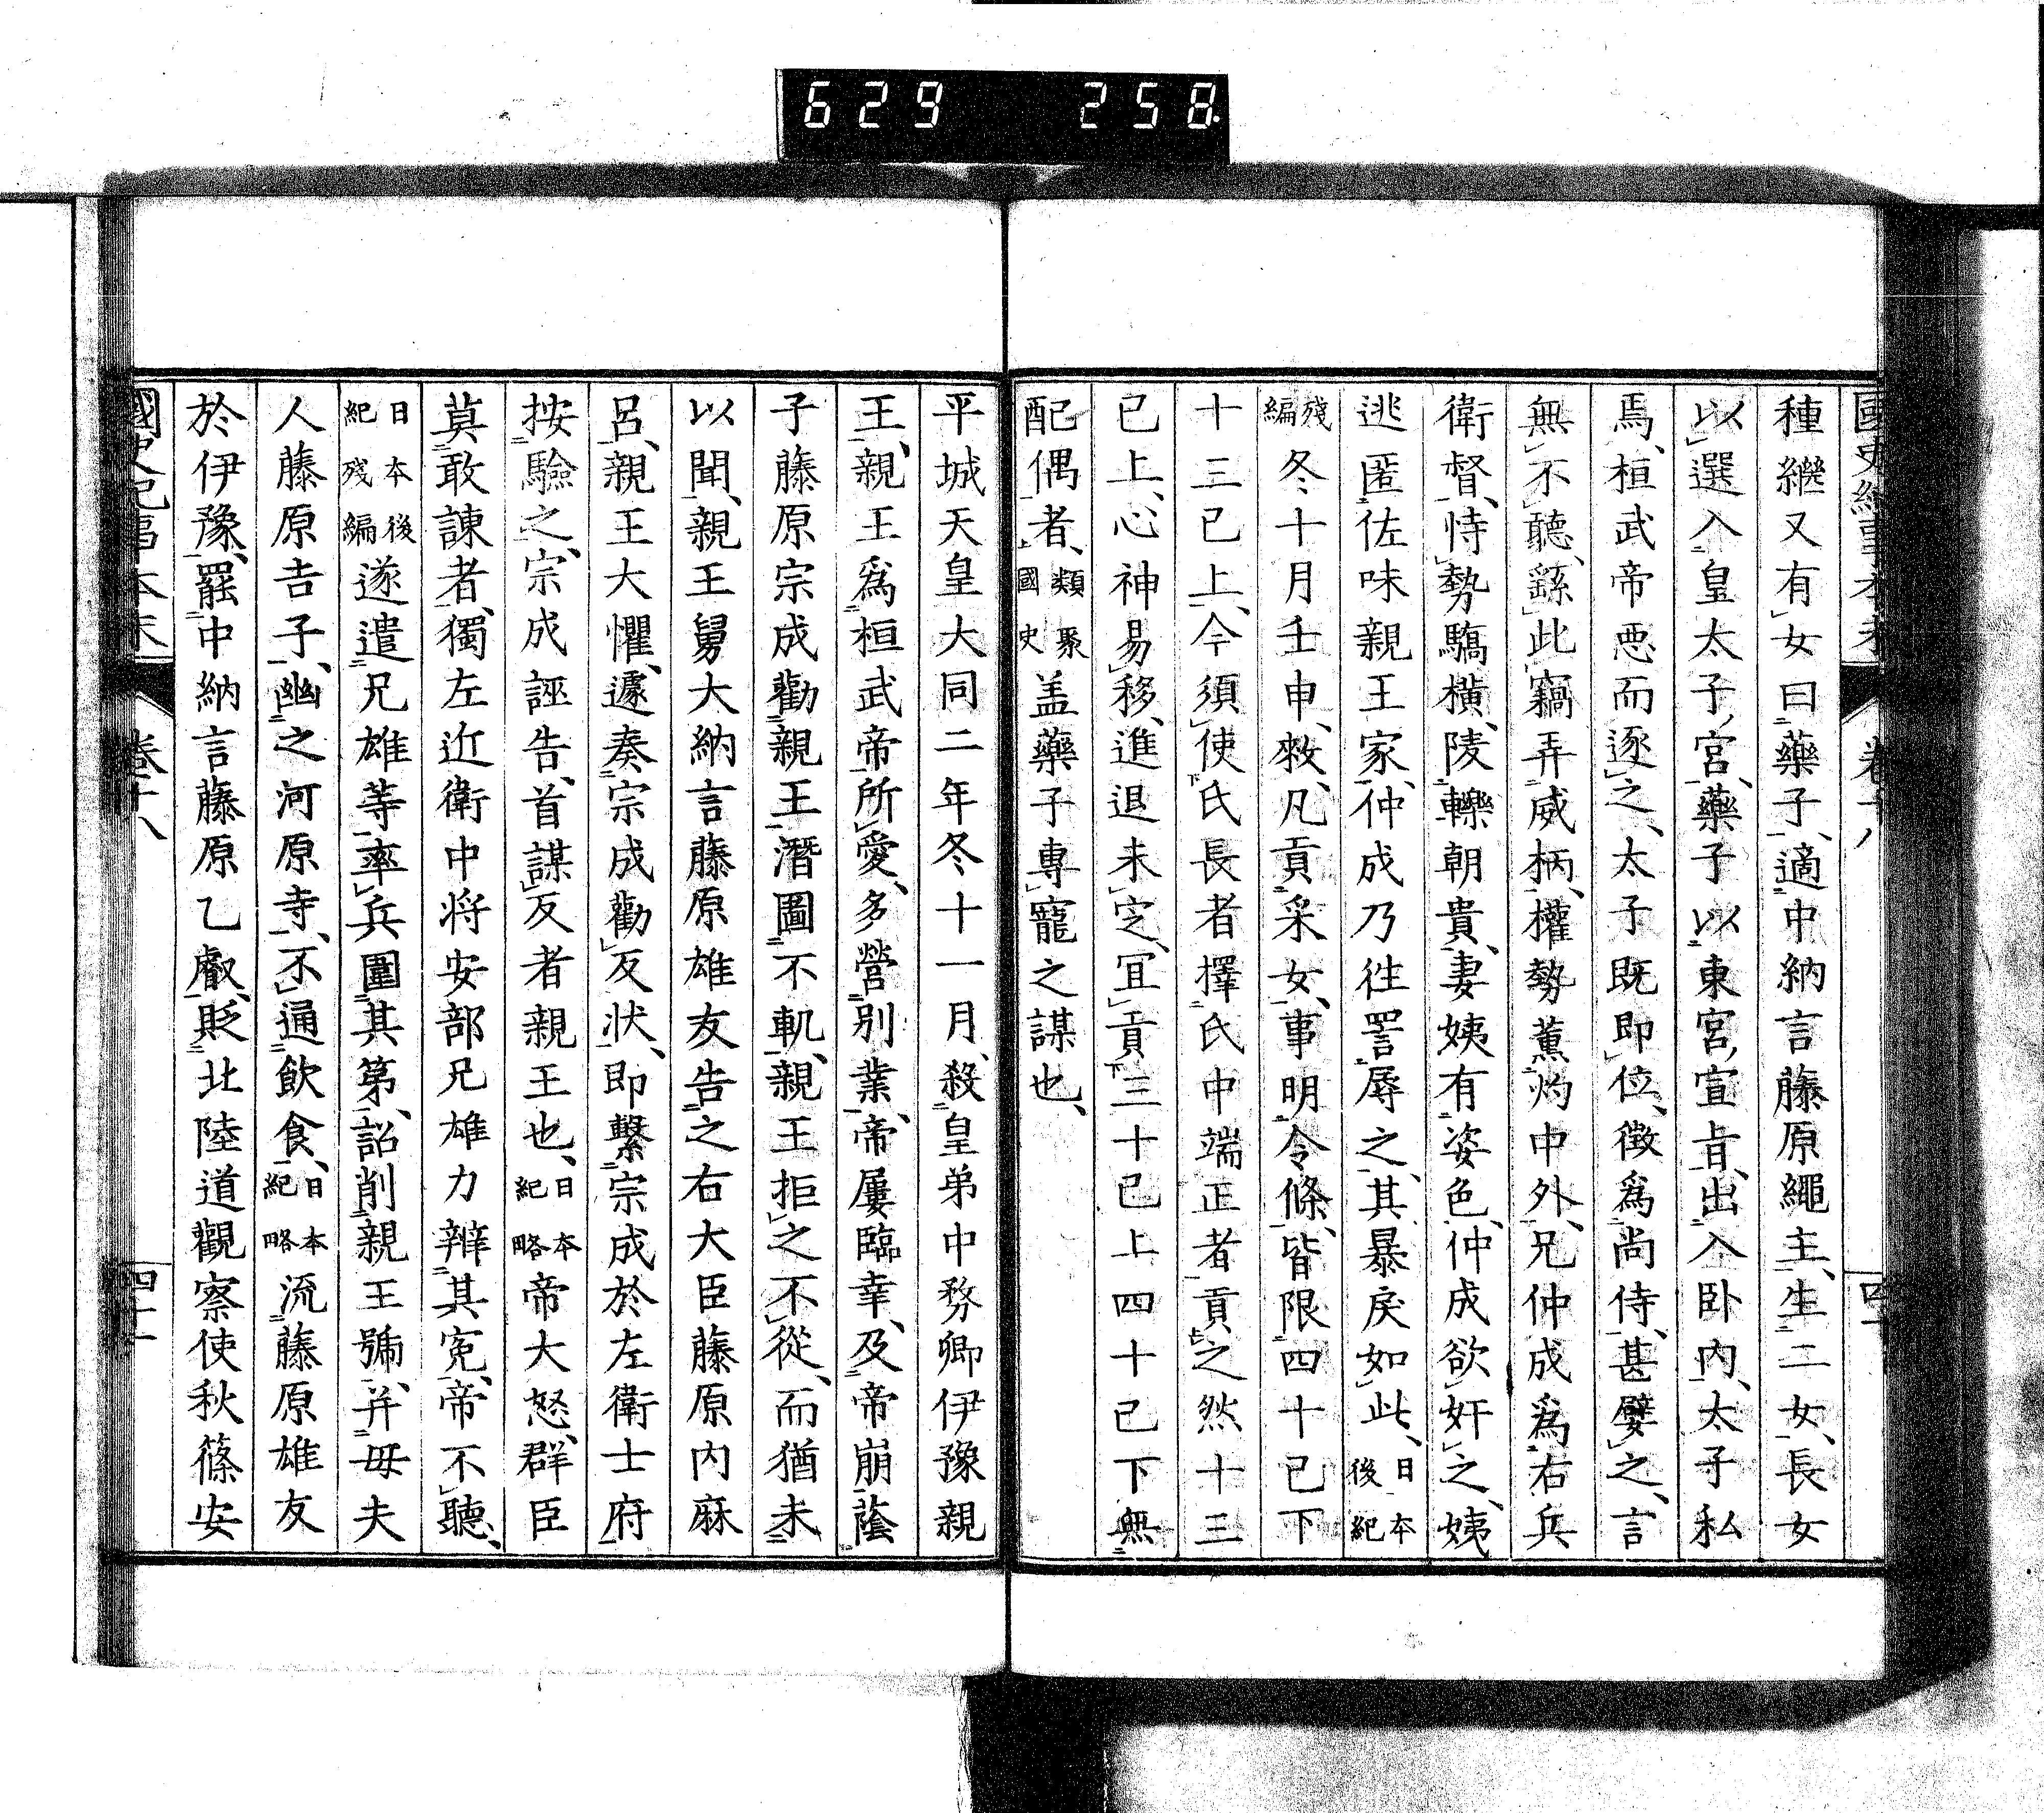 629 258
國史紀事本末 卷十八 四十一
種繼又有女曰藥子、適中納言藤原繩主、生二女、長女
以選入皇太子宮、藥子以東宮宣旨、出入卧内、太子私
焉、桓武帝惡而逐之、太子既即位、徴爲尚侍、甚嬖之、言
無不聽、繇此竊弄威柄、權勢薫灼中外、兄仲成爲右兵
衛督、恃勢驕橫、陵轢朝貴、妻姨有姿色、仲成欲奸之、姨
逃匿佐味親王家、仲成乃往詈辱之、其暴戻如此、日本後紀
殘編冬十月壬申、敕、凡貢采女、事明令條、皆限四十已下
十三已上、今須使氏長者擇氏中端正者貢之然十三
已上、心神易移、進退未定、冝貢三十已上四十已下無
配偶者、類聚國史盖藥子專寵之謀也、
平城天皇大同二年冬十一月、殺皇弟中務卿伊豫親
王、親王爲桓武帝所愛、多營别業、帝屢臨幸、及帝崩蔭
子藤原宗成勸親王潛圖不軌、親王拒之不從、而猶未
以聞、親王舅大納言藤原雄友告之右大臣藤原内麻
呂、親王大懼、遽奏宗成勸反状、即繫宗成於左衛士府
按驗之、宗成誣告、首謀反者親王也、日本紀略帝大怒、群臣
莫敢諫者、獨左近衛中将安部兄雄力辨其寃、帝不聽、
日本後紀殘編遂遣兄雄等率兵圍其第、詔削親王號、并母夫
人藤原吉子、幽之河原寺、不通飲食、日本紀略流藤原雄友
於伊豫、罷中納言藤原乙叡、貶北陸道觀察使秋篠安
國史紀事本末 卷十八 四十一